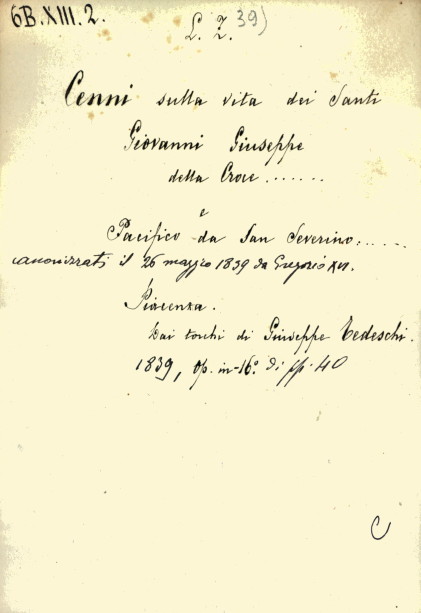 6B.XIII.2.
L. Z. 39)
Cenni sulla vita dei Santi
Giovanni Giuseppe
della Croce......
e
Pacifico da San Severino.....
canonizzati il 26 maggio 1839 da Gregorio XVI.
Piacenza.
Dai torchi di Giuseppe Tedeschi.
1839, op. in-16° di pp. 40
C